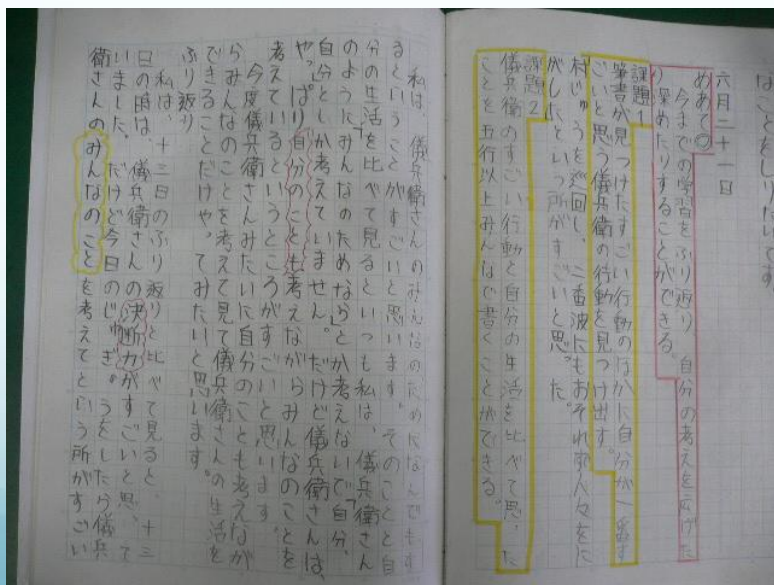 なことをしりたいです
六月二十一日
めあて◎
今までの学習をふり返り、自分の考えを広げた
り深めたりすることができる。
課題1
筆者が見つけたすごい行動のほかに自分が一番す
ごいと思う儀兵衛の行動を見つけ出す。
村じゅうを巡回し、二番波にもおそれず人々をに
がしたといっ所がすごいと思った。
課題2
儀兵衛のすごい行動と自分の生活を比べて思った
ことを五行以上みんなで書くことができる。
私は、儀兵衛さんのみんなのためになんでもす
るということがすごいと思います。そのことと自
分の生活を比べて見るといつも私は、儀兵衛さん
のように「みんなのためなら」とか考えないで「自分、
自分」としか考えていません。だけど儀兵衛さんは、
やっぱり自分のことも考えながらみんなのことを
考えているというところがすごいと思います。
今度儀兵衛さんみたいに自分のことも考えなが
らみんなのことを考えて見て儀兵衛さんの生活を
できることだけやってみたいと思います。
ふり返り
私は、十三日のふり返りと比べて見ると、十三
日の時は、儀兵衛さんの決断力がすごいと思って
いました。だけど今日のじゅぎょうをしたら儀兵
衛さんのみんなのことを考えてという所がすごい